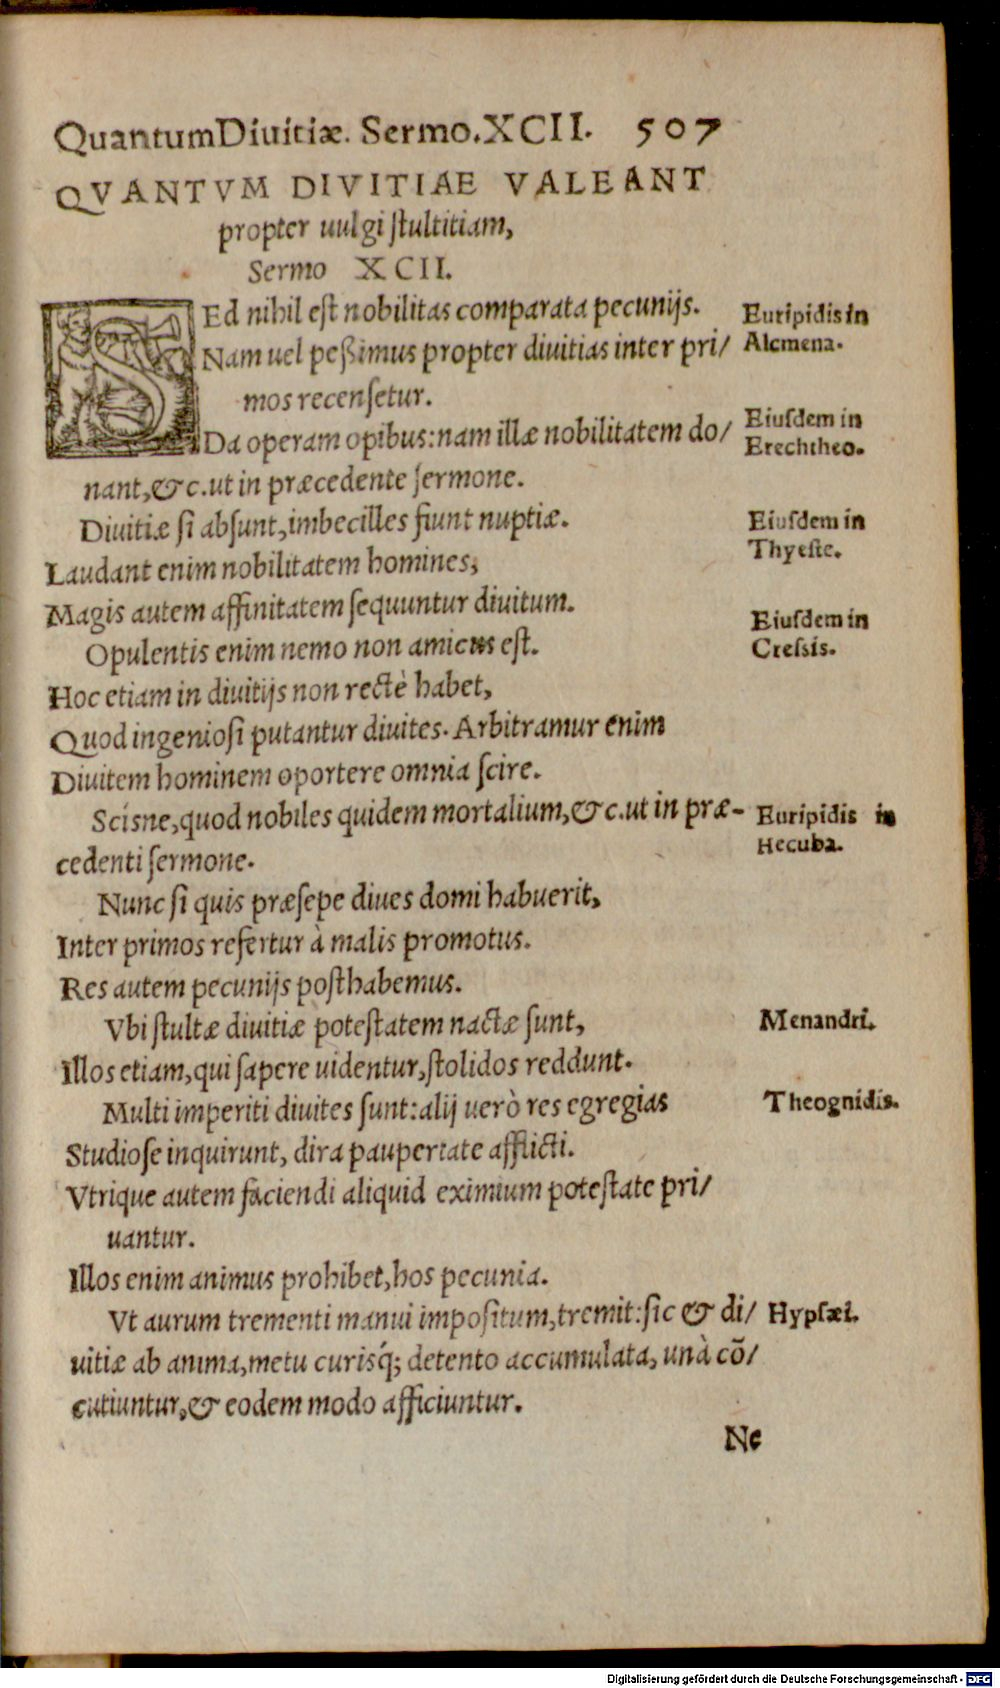 QuantumDiuitiæ. Sermo.XCII. 507
QVANTVM DIVITIAE VALEANT
propter uulgi ſtultitiam,
Sermo XCII.
SEd nihil eſt nobilitas comparata pecunijs.
Euripidis in
Nam uel peßimus propter diuitias inter pri/
Alcmena.
mos recenſetur.
Da operam opibus:nam illæ nobilitatem do/
Eiuſdem in
Erechtheo.
nant,&c.ut in præcedente ſermone.
Diuitiæ ſi abſunt,imbecilles fiunt nuptiæ.
Eiuſdem in
Thyeſte.
Laudant enim nobilitatem homines,
Magis autem affinitatem ſequuntur diuitum.
Eiuſdem in
Opulentis enim nemo non amicus eſt.
Creſsis.
Hoc etiam in diuitijs non rectè habet,
Quod ingenioſi putantur diuites. Arbitramur enim
Diuitem hominem oportere omnia ſcire.
Scisne,quod nobiles quidem mortalium,&c.ut in præ-
Euripidis in
Hecuba.
cedenti ſermone.
Nunc ſi quis præſepe diues domi habuerit,
Inter primos refertur à malis promotus.
Res autem pecunijs poſthabemus.
Vbi ſtultæ diuitiæ poteſtatem nactæ ſunt,
Menandri.
Illos etiam,qui ſapere uidentur,ſtolidos reddunt.
Multi imperiti diuites ſunt:alij uerò res egregias
Theognidis.
Studioſe inquirunt, dira paupertate afflicti.
Vtrique autem faciendi aliquid eximium poteſtate pri/
uantur.
Illos enim animus prohibet,hos pecunia.
Vt aurum trementi manui impoſitum,tremit:ſic & di/
Hypſæi.
uitiæ ab anima,metu curisq́; detento accumulata, unà cõ/
cutiuntur,& eodem modo afficiuntur.
Ne
Digitalisierung gefördert durch die Deutsche Forschungsgemeinschaft - DFG